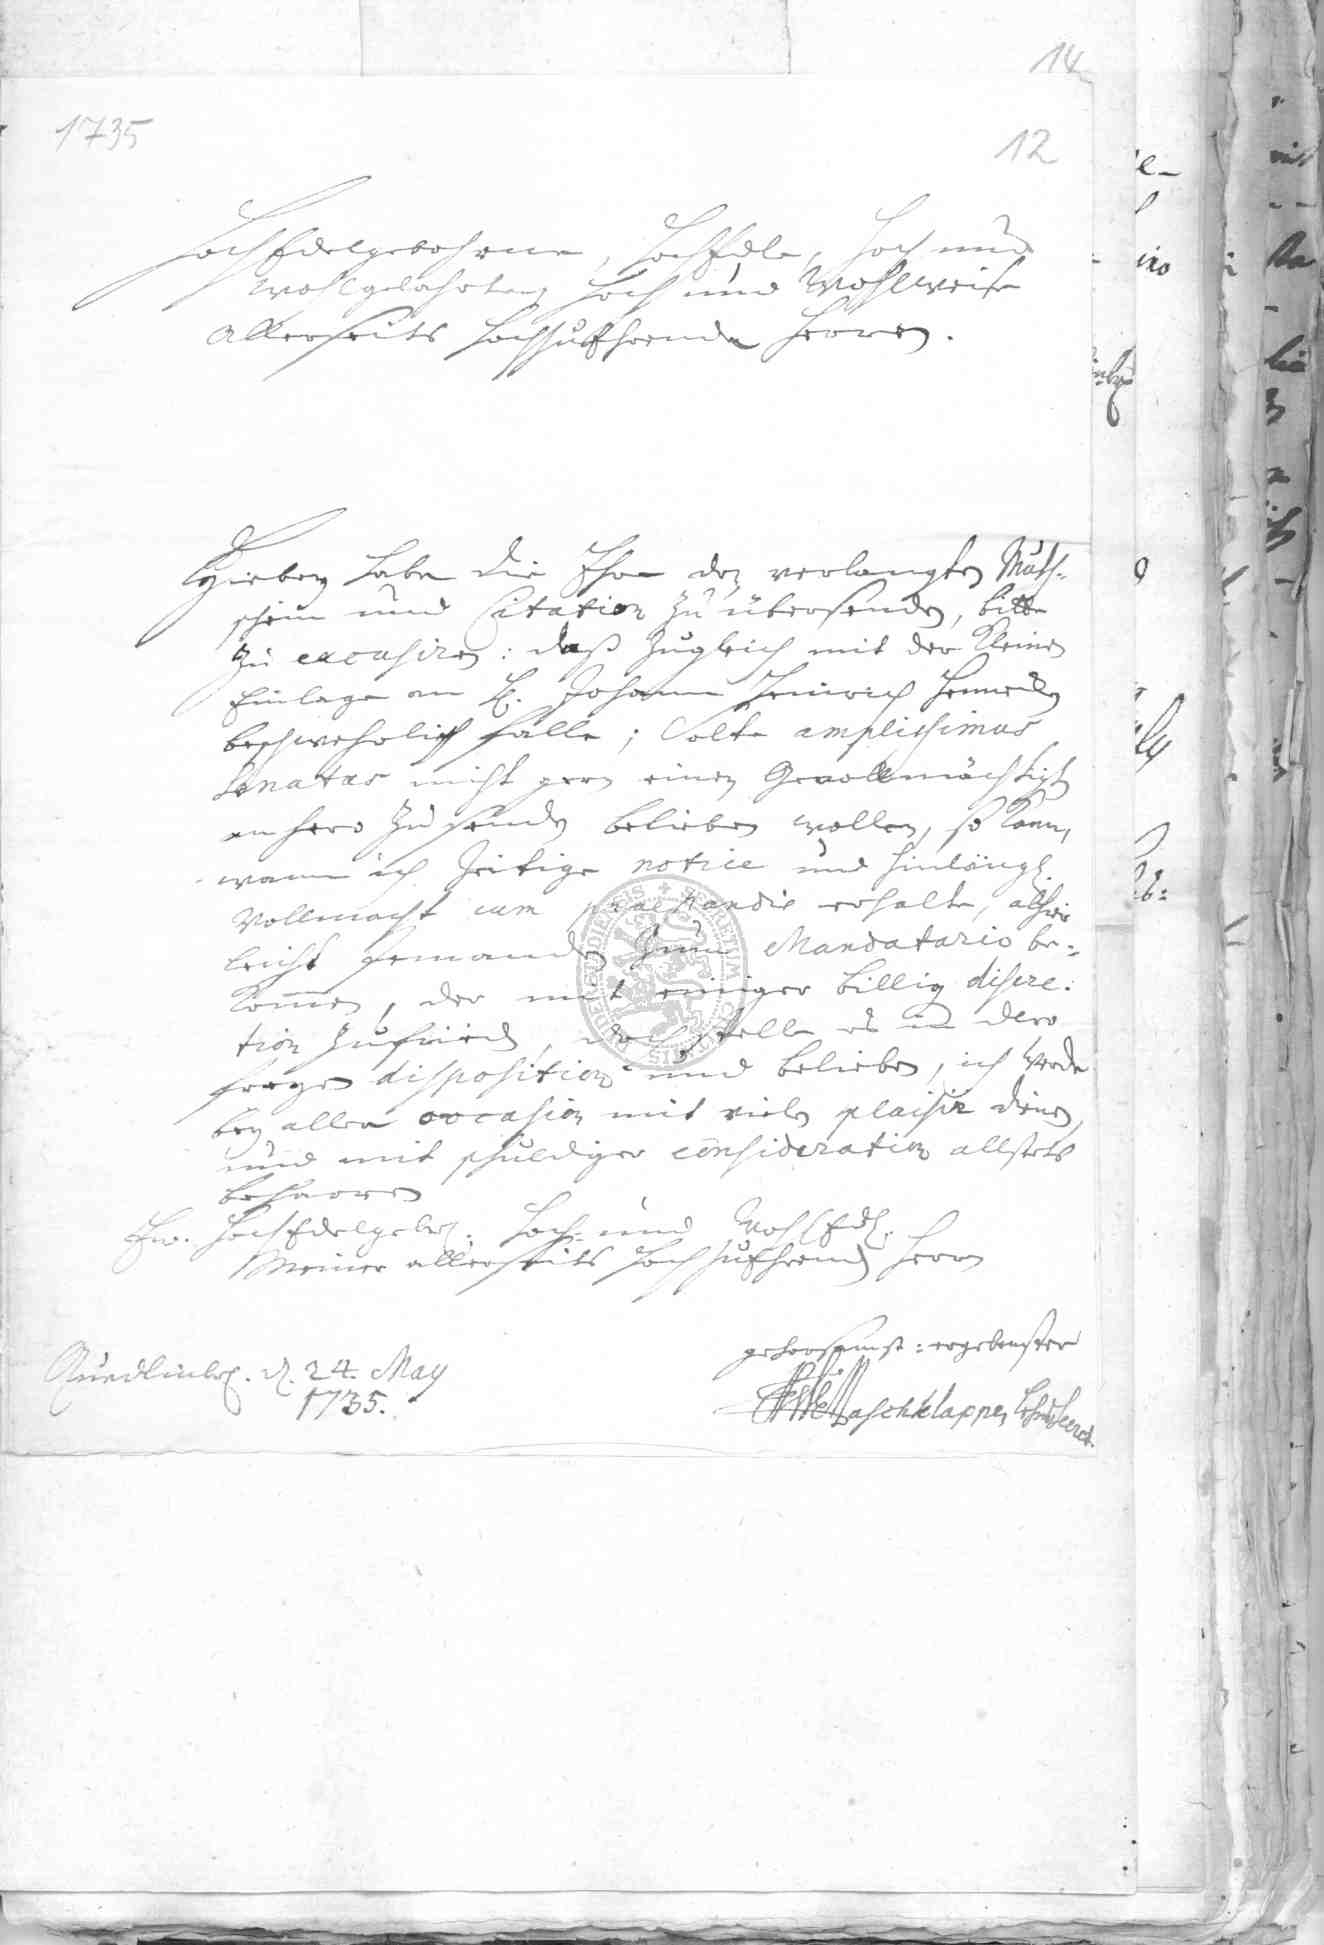 14
1735
12
HochEdelgebohrne, HochEdle, Hoch und
Wohlgelahrte, Hoch und Wohlweise
allerseits HochzuEhrende Herren.
Hierbey habe die Ehre den verlangten Muth-
schein und Citation zu übersenden, bitte
zu excusiren: daß zugleich mit der kleinen
Einlage an H. Johann Heinrich
beschwehrlich falle; Solte amplissimus
Senatus nicht gern einen Gevollmächtigten
anhero zu senden belieben wollen, so kan,
wann ich zeitige notice und hinlängl.
Vollmacht cum erhalte, alhier
leicht jemanden zum Mandatario be-
kommen, der mit einiger billigen discre-
tion zufrieden, doch stelle es in dero
eigen disposition und belieben, ich werde
bey aller occasion mit vielen plaisir dienen,
und mit schuldiger consideration allstets
beharren
Ew. HochEdelgeb. Hoch- und WohlEdl.
Meiner allerseits HochzuEhrenden Herrn
Quedlinbg. d. 24. May
1735.
gehorsamst-ergebenster
Maschklappe,
SECRETUM CIVITATIS QUIDELIGEBURGENSIS